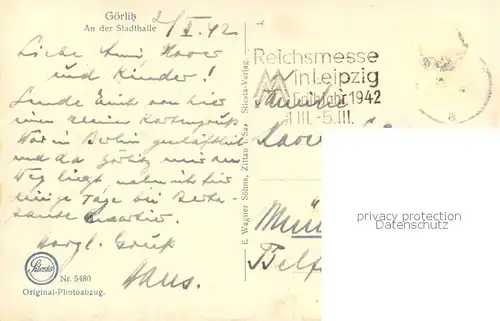 Görlitz
An der Stadthalle
2/II. 42
Liebe
und Kinder!
Sende Euch von hier
einen kleinen Kartengruß.
War in Berlin geschäftlich
und da Görlitz mir am
Weg liegt nehm ich hier
einige Tage bei
Quartier.
Herzl. Gruß
Hans.
Silesia
Nr. 5480
Original-Photoabzug.
E. Wagner Söhne, Zittau i. Sa. Silesia-Verlag.
Reichsmesse
in Leipzig
Frühjahr 1942
1.III.-5.III.
a
Familie
privacy protection
Datenschutz